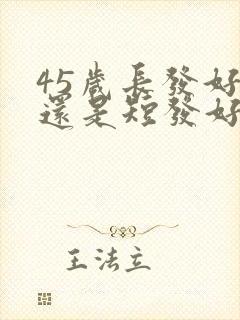 45歲長發好
還是短發好
王法立